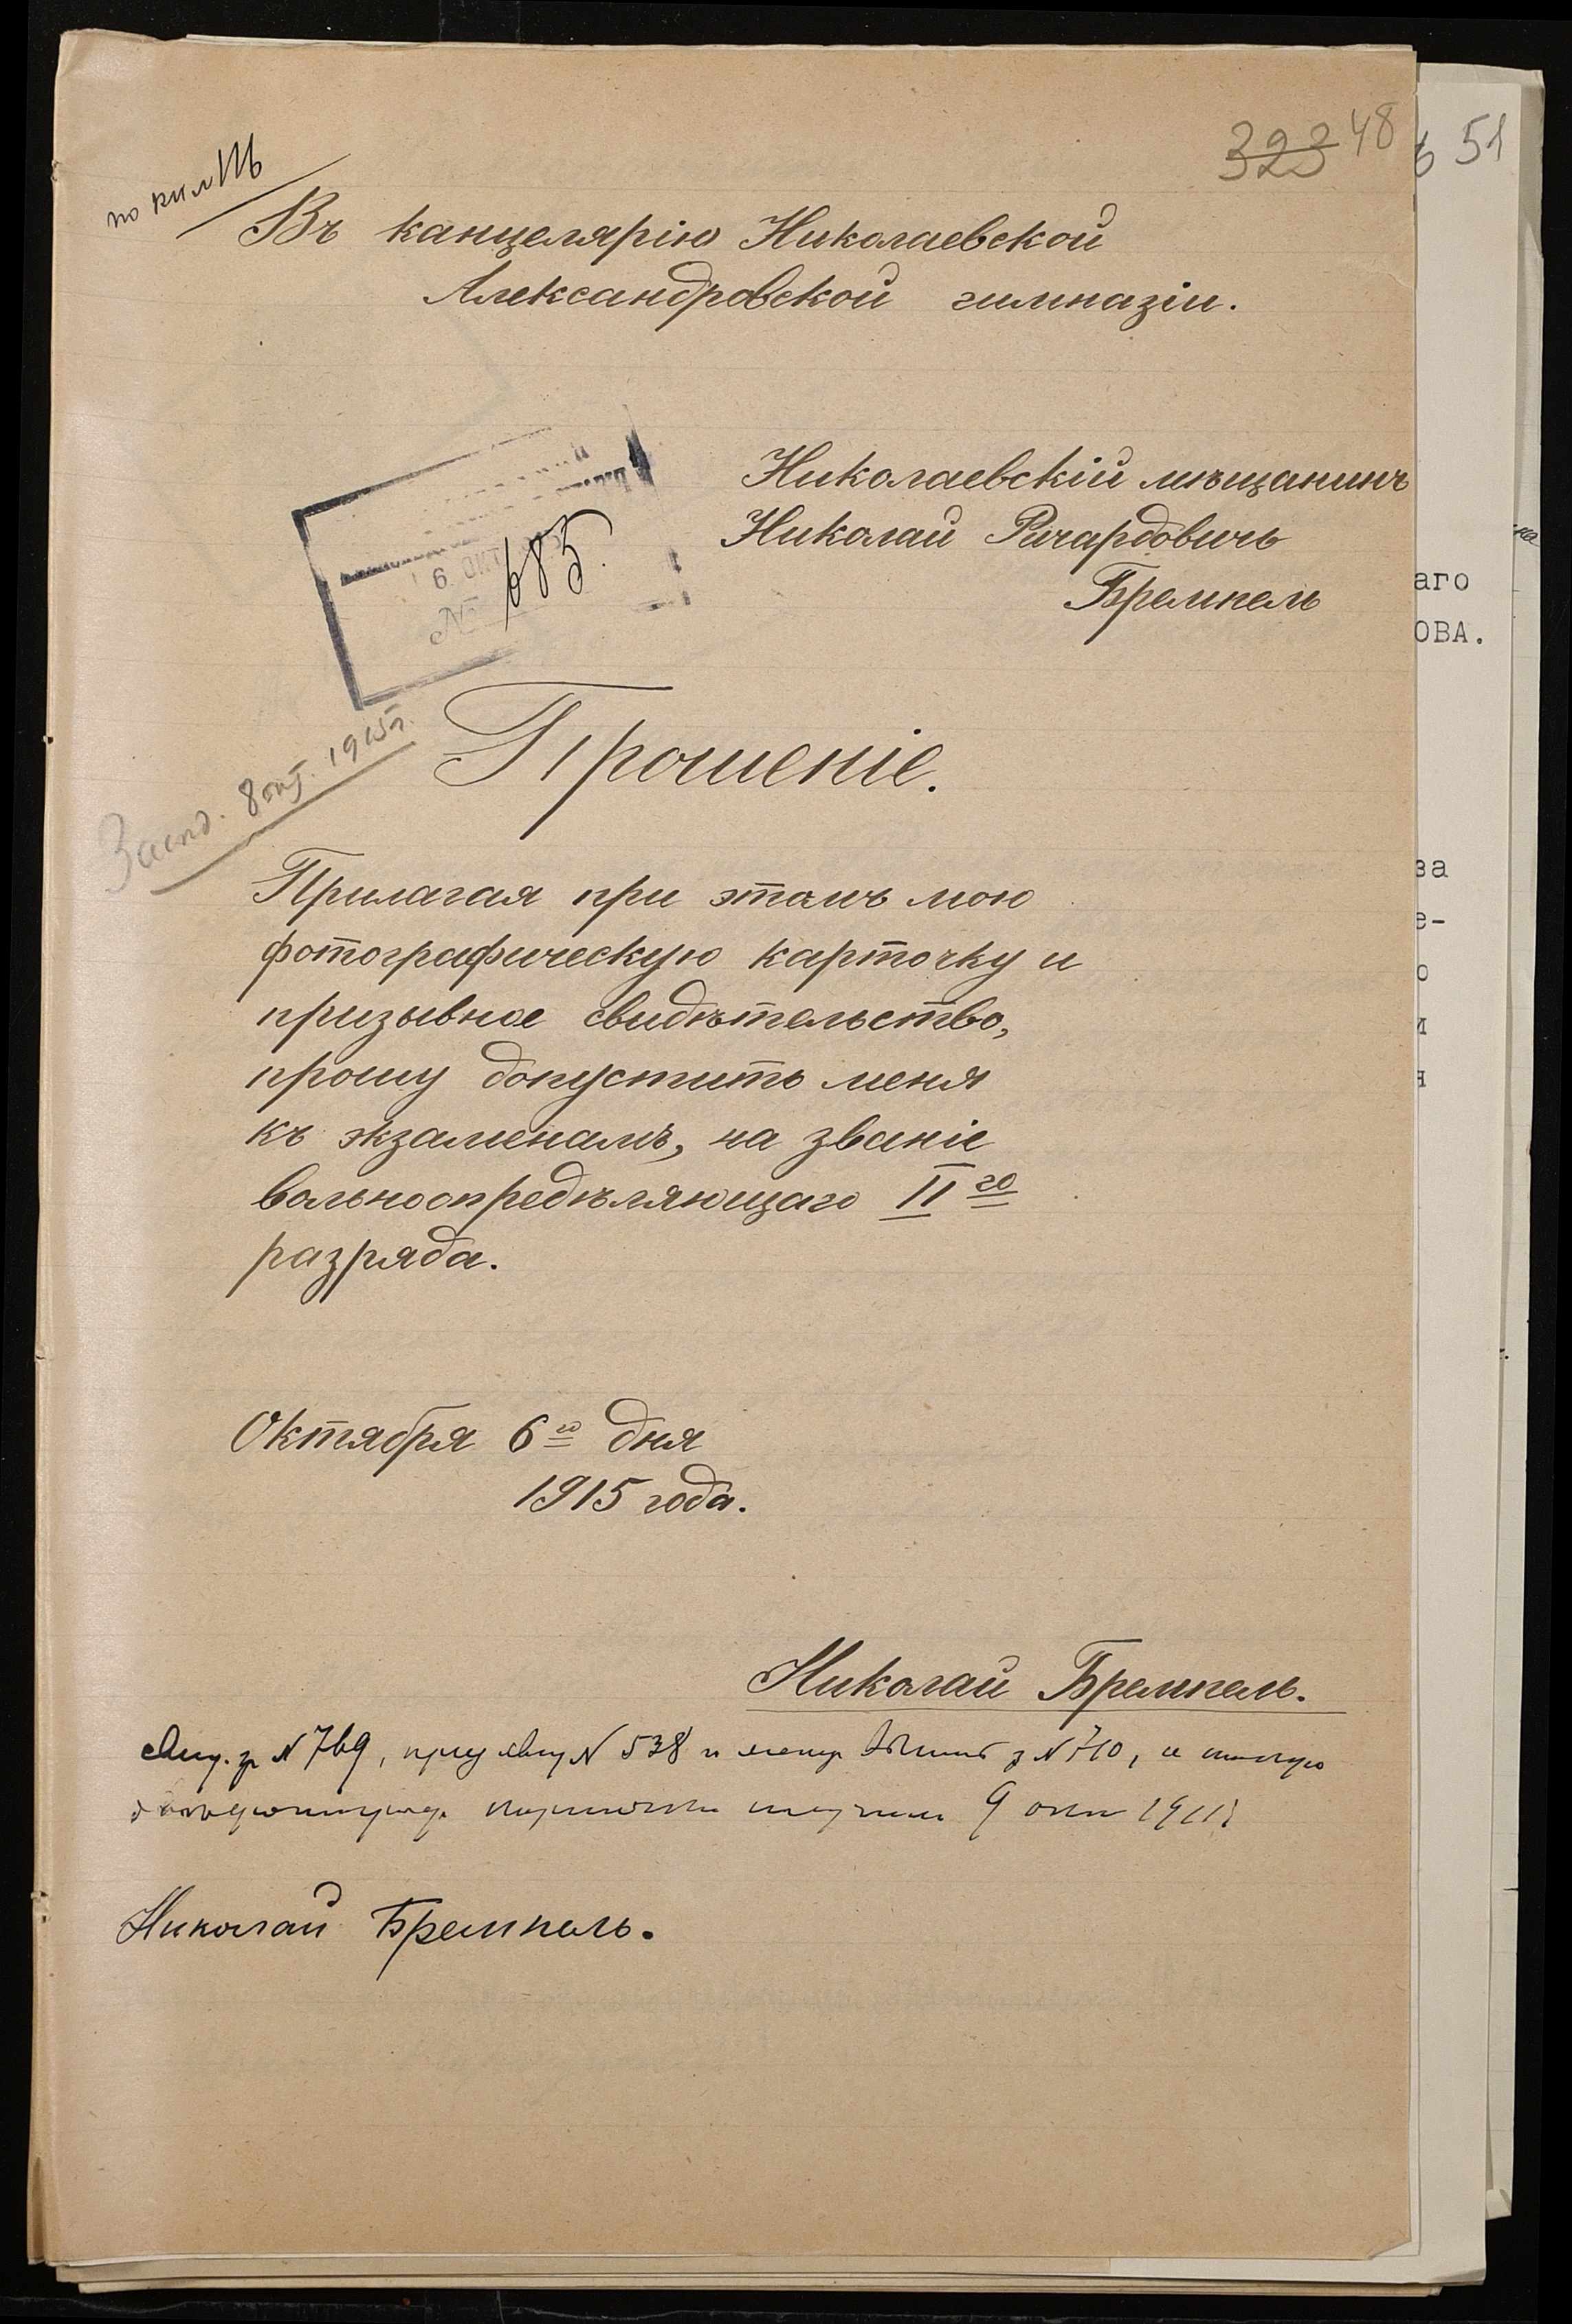 323 48
51
Въ канцелярію Николаевской
Александровской гимназіи.
Николаевскій мѣщанинъ
Николай Ричардовичъ
Бремпель
6 ОКТ
№ 685.
Прошеніе.
8 окт. 1915 г.
Прилагая при этомъ мою
фотографическую карточку и
призывное свидѣтельство,
прошу допустить меня
къ экзаменамъ, на званіе
вольноопредѣляющаго II го
разряда.
Октября 6 го дня
1915 года.
Николай Бремпель.
№ 769, № 538 и № 710, и
9 окт
Николай Бремпель.
аго
ОВА.
за
е-
о
и
я